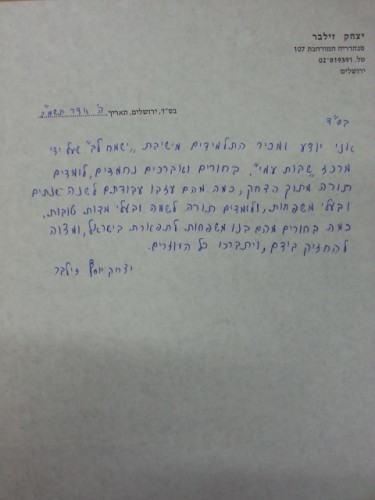 יצחק זילבר
סנהדריה המורחבת 107
טל. 02-819391
ירושלים
בס"ד, ירושלים, תאריך ה' אדר תשמ"
בס"ד
אני יודע ומכיר התלמידים מישיבת "ישמח לב" שעל ידי
מרכז "שבות עמי". בחורים ואברכים נחמדים, לומדים
תורה מתוך הדחק, כמה מהם עזבו עבודתם לשנה שנתים
ובעלי משפחות, ולומדים תורה לשמה ובעלי מדות טובות.
כמה בחורים מהם בנו משפחות לתפארת בישראל, ומצוה
להחזיק בידם, ויתברכו כל העוזרים.
יצחק יוסף זילבר